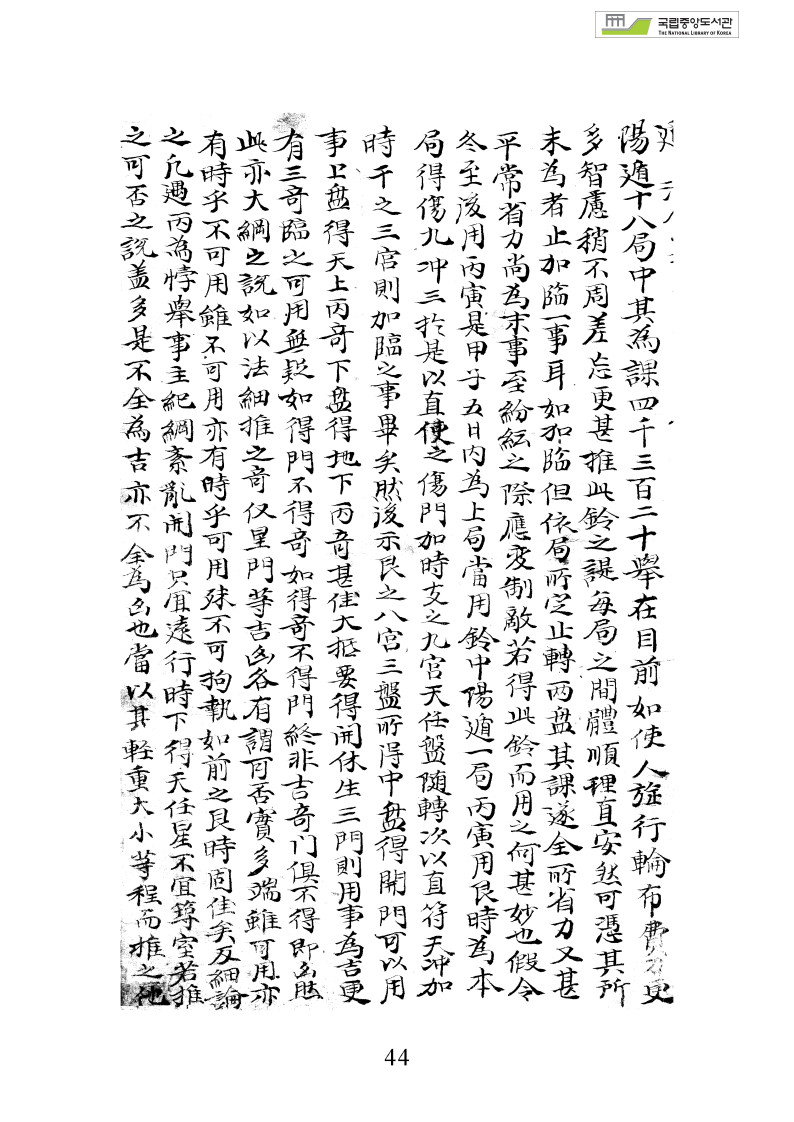 국립중앙도서관
THE NATIONAL LIBRARY OF KOREA
遁
陽遁十八局中其為課四千三百二十舉在目前如使人旋行輪布費更
多智慮稍不周差忘更甚推此鈴之諟每局之間體順理直安然可憑其所
未為者止加臨一事耳如加臨但依局所定止轉两盘其課遂全所省力又甚
平常省力尚為末事至紛紜之際應变制敵若得此鈴而用之何甚妙也假令
冬至後用丙寅是甲子五日内為上局當用鈴中陽遁一局丙寅用艮時為本
局得傷九冲三扵是以直使之傷門加時支之九宫天任盤随轉次以直符天冲加
時干之三宫則加臨之事畢矣然後示艮之八宫三盤所得中盘得開門可以用
事上盘得天上丙竒下盘得地下丙竒甚佳大抵要得開休生三門則用事為吉更
有三竒臨之可用無疑如得門不得竒如得竒不得門終非吉竒门俱不得即凶然
此亦大綱之説如以法細推之竒仪星門等吉凶各有謂可否實多端雖可用亦
有時乎不可用雖不可用亦有時乎可用殊不可拘執如前之艮時固佳矣及細論
之凢遇丙為悖舉事主紀綱紊亂開門只宜遠行時下得天任星不宜築室若推
之可否之説盖多是不全為吉亦不全為凶也當以其軽重大小等程而推之他
44